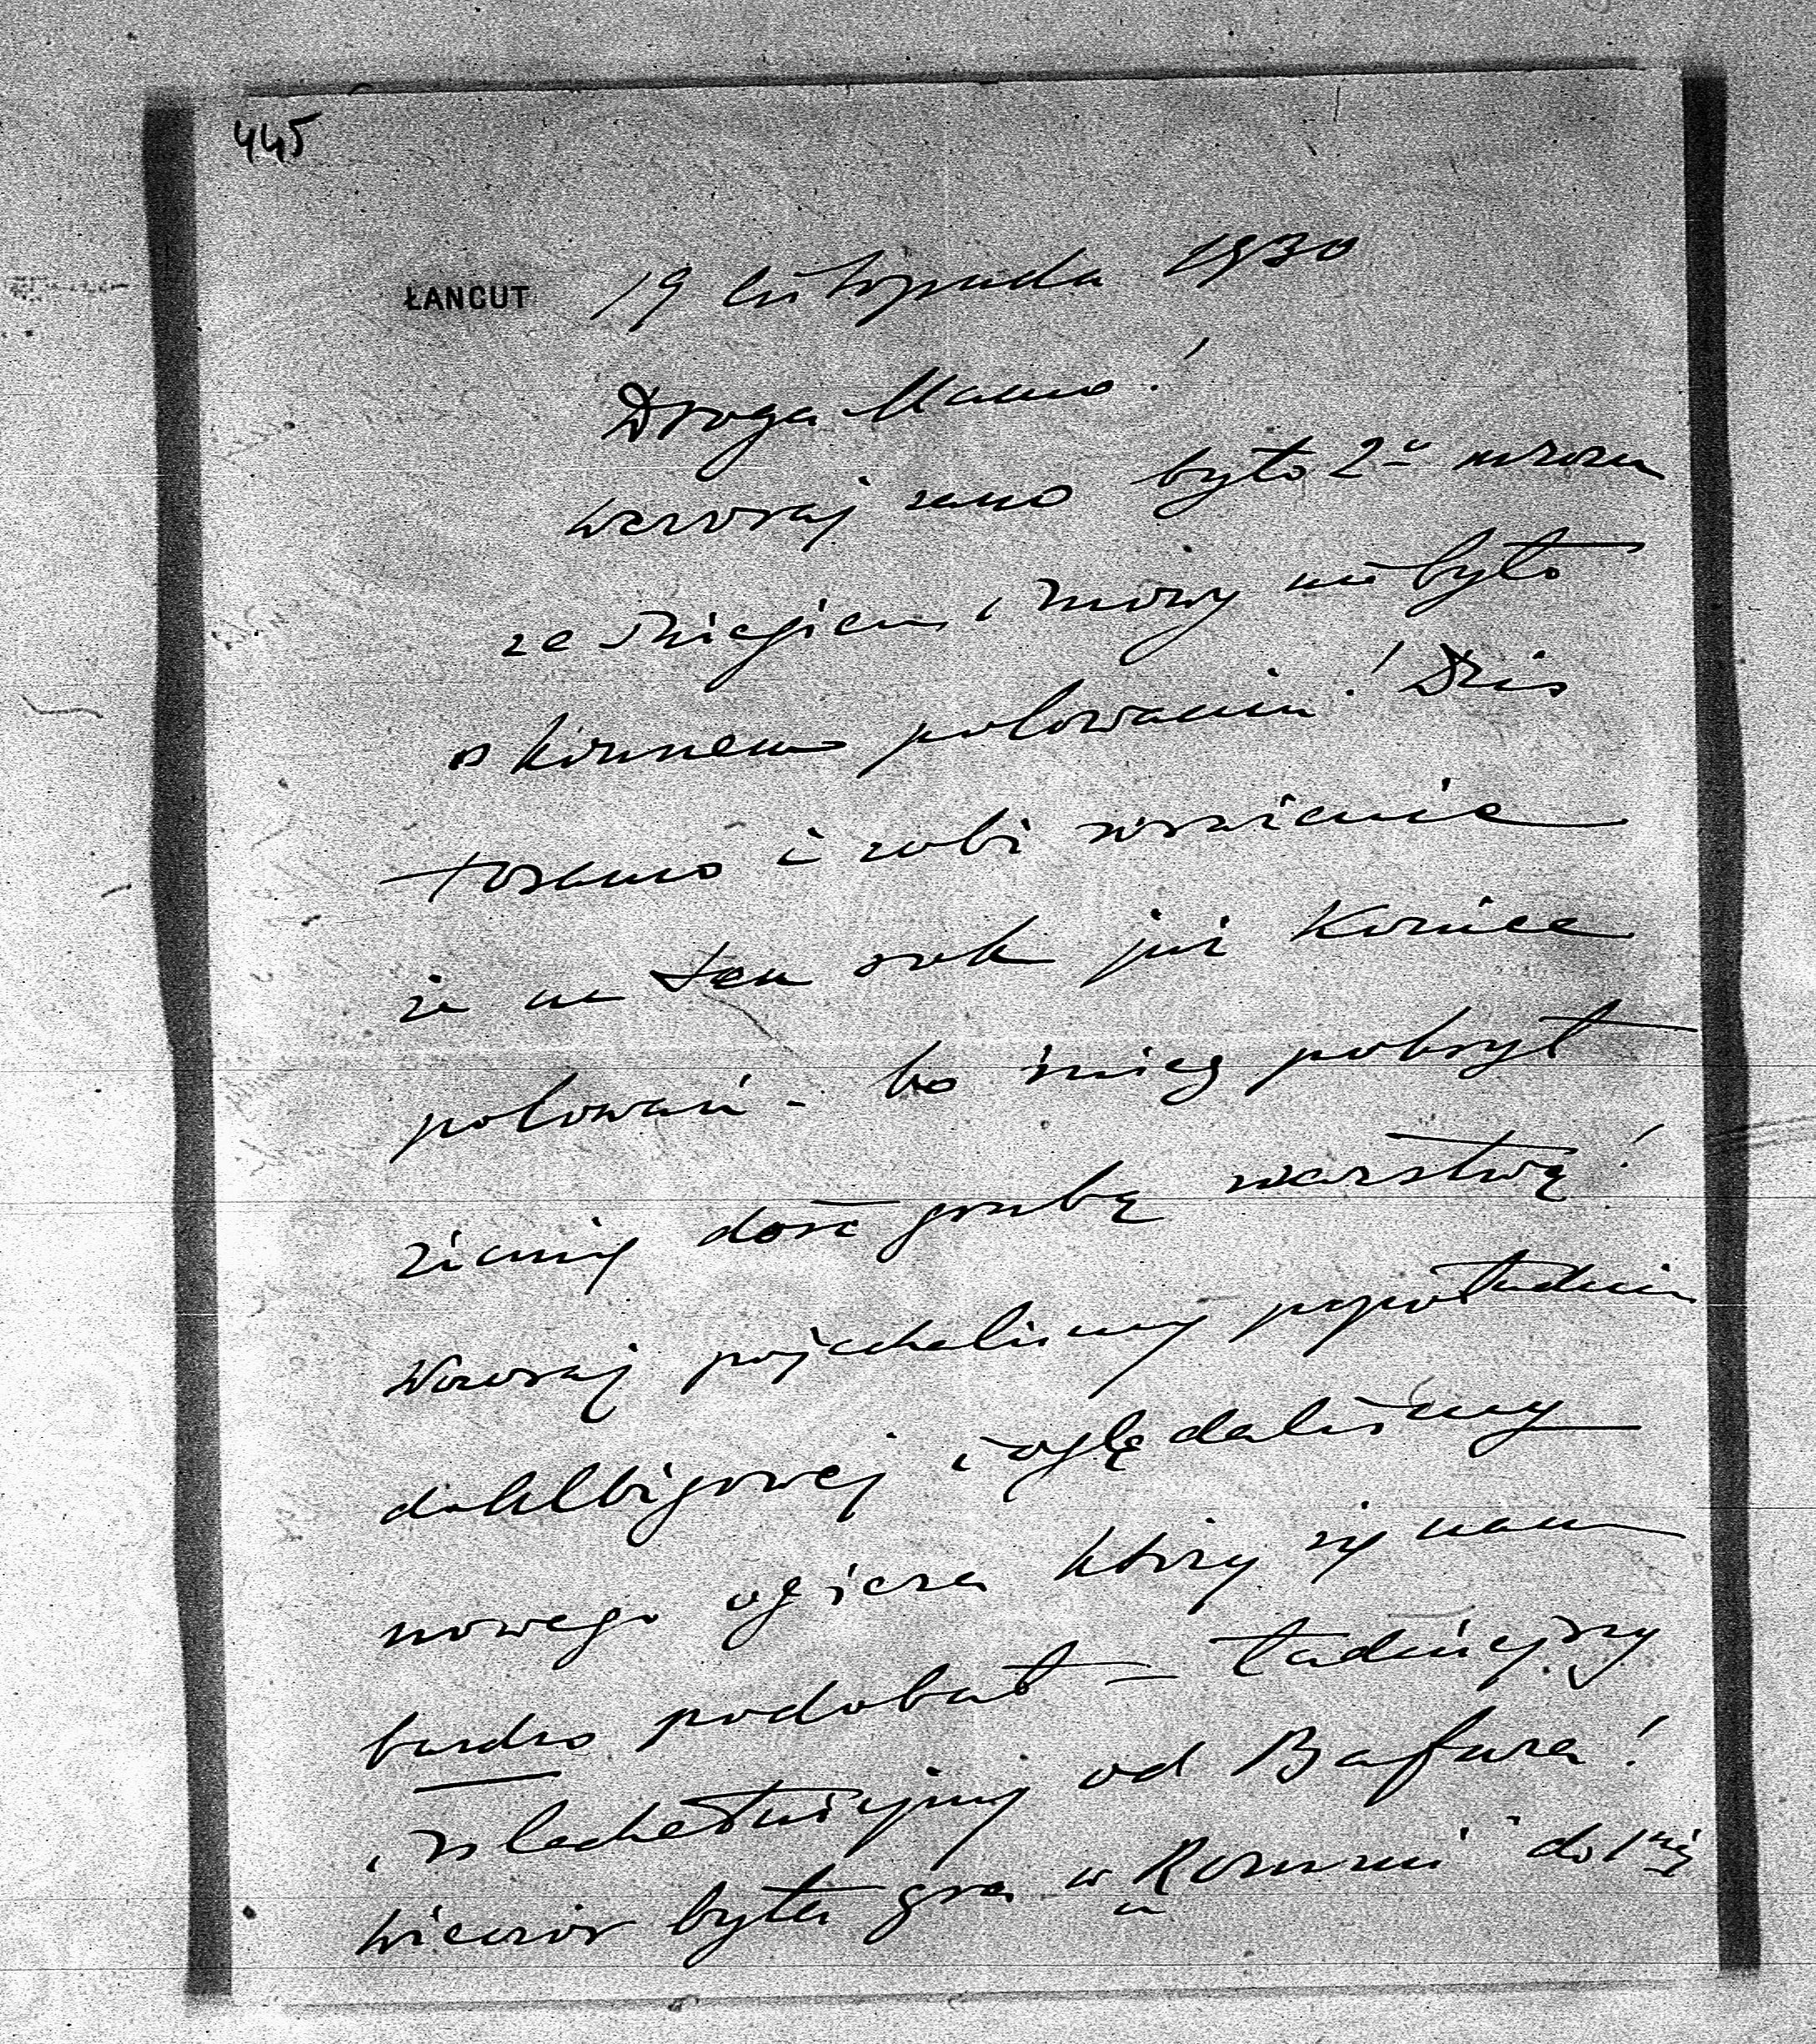 445
ŁANCUT 19 listopada 1930
Droga Mamo!
wczoraj rano było 2° mrozu
ze śniegiem i mowy nie było
o konnem polowaniu! Dziś
tosamo i robi wrażenie
że na ten rok już koniec
polowań - bo śnieg pokrył
ziemię dość grubą warstwą!
Wczoraj pojechaliśmy popołudniu
do Albigowej i oglądaliśmy
nowego ogiera który się nam
bardzo podobał - ładniejszy
i szlachetniejszy od Bafura!
wieczór była gra w "Rommi" do 1ej